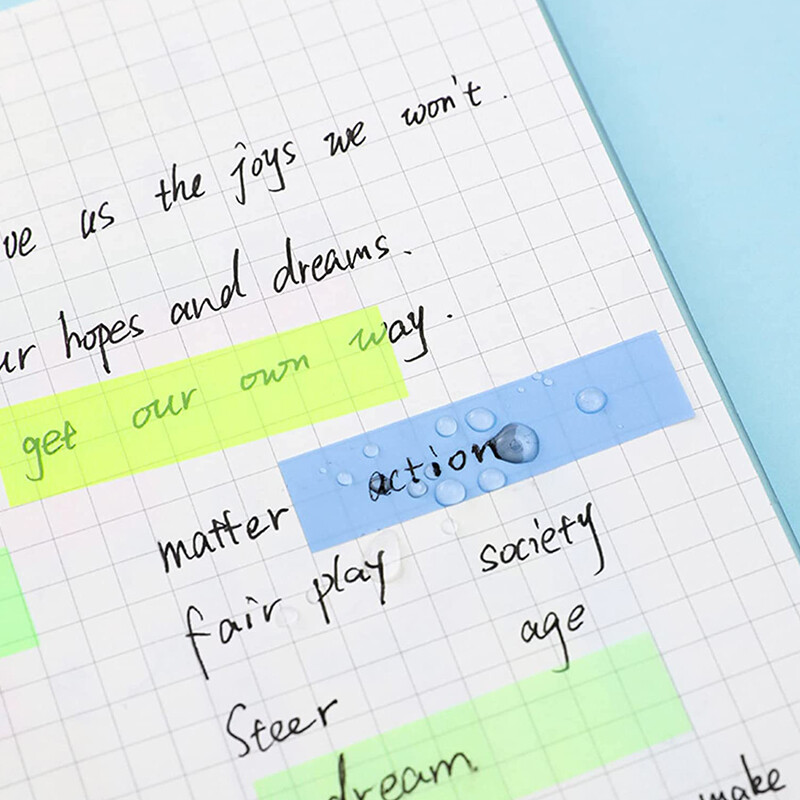 us the joys we won't.
hopes and dreams.
get our own way.
matter action
fair play society
age
Steer
dream.
make